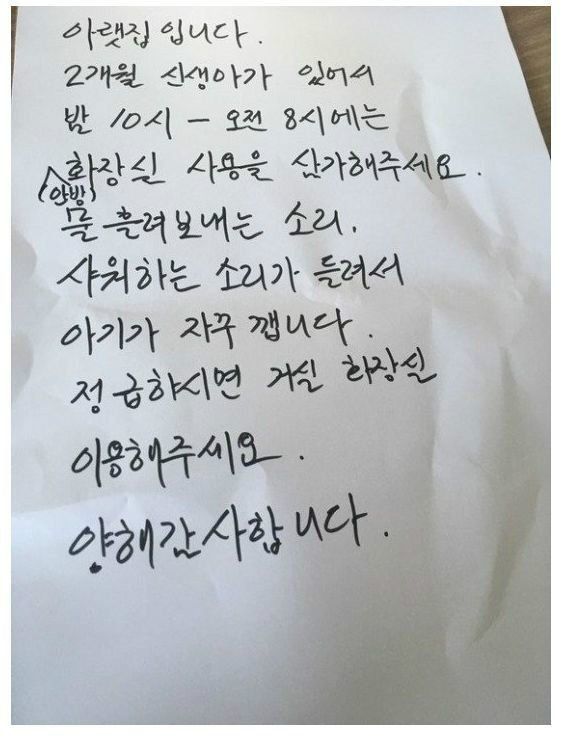 아랫집입니다.
2개월 신생아가 있어서
밤 10시 - 오전 8시에는
(안방) 화장실 사용을 삼가해주세요.
물 흘려보내는 소리.
샤워하는 소리가 들려서
아기가 자꾸 깹니다.
정 급하시면 거실 화장실
이용해주세요.
양해감사합니다.